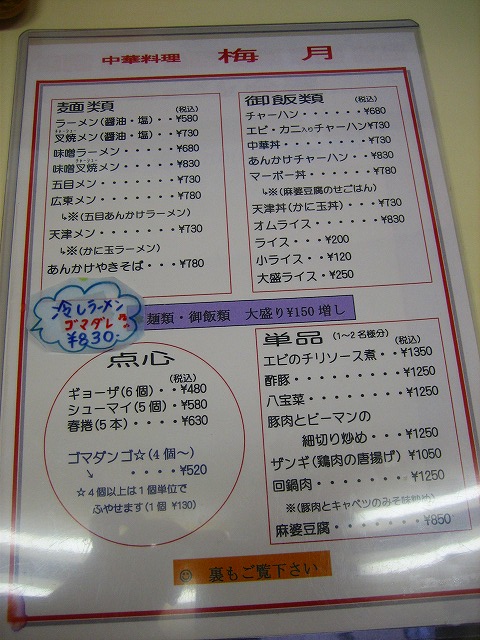 中華料理 梅月
麺類 (税込)
ラーメン(醤油・塩)・・¥580
チャーシュー
叉焼メン(醤油・塩)・・¥730
味噌ラーメン・・・・・¥680
チャーシュー
味噌叉焼メン・・・・・¥830
五目メン・・・・・・・¥730
広東メン・・・・・・・¥780
↳※(五目あんかけラーメン)
天津メン・・・・・・・¥730
↳※(かに玉ラーメン)
あんかけやきそば・・・¥780
冷しラーメン
ゴマダレ
¥830-
御飯類 (税込)
チャーハン・・・・・・¥680
エビ・カニ入りチャーハン¥730
中華丼・・・・・・・・¥730
あんかけチャーハン・・¥830
マーボー丼・・・・・・¥780
↳※(麻婆豆腐のせごはん)
天津丼(かに玉丼)・・・¥730
オムライス・・・・・・¥830
ライス・・・¥200
小ライス・・¥120
大盛ライス・¥250
麺類・御飯類 大盛り¥150増し
点心
(税込)
ギョーザ(6個)・・¥480
シューマイ(5個)・¥580
春捲(5本)・・・・¥630
ゴマダンゴ☆(4個〜)
↘ ・・・・・¥520
☆4個以上は1個単位で
ふやせます(1個 ¥130)
単品 (1〜2名様分)
(税込)
エビのチリソース煮・・¥1350
酢豚・・・・・・・・・¥1250
八宝菜・・・・・・・・¥1250
豚肉とピーマンの
細切り炒め・・・¥1250
ザンギ(鶏肉の唐揚げ)¥1050
回鍋肉・・・・・・・・¥1250
※(豚肉とキャベツのみそ味炒め)
麻婆豆腐・・・・・・・¥850
裏もご覧下さい